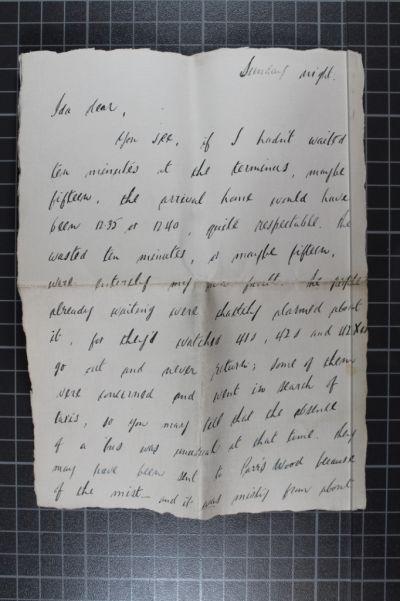 Sunday night.
Ida dear,
You see, if I hadn't waited
ten minutes at the terminus, maybe
fifteen, the arrival home would have
been 12.35 or 12.40, quite respectable. The
wasted ten minutes, or maybe fifteen,
were entirely my own fault. The people
already waiting were chattely alarmed about
it, for they'd watched 41s, 42s and 42Xs
go out and never return; some of them
were concerned and went in search of
taxis, so you may tell that the absence
of a bus was unusual at that time. They
may have been sent to Parrs Wood because
of the mist – and it was misty from about